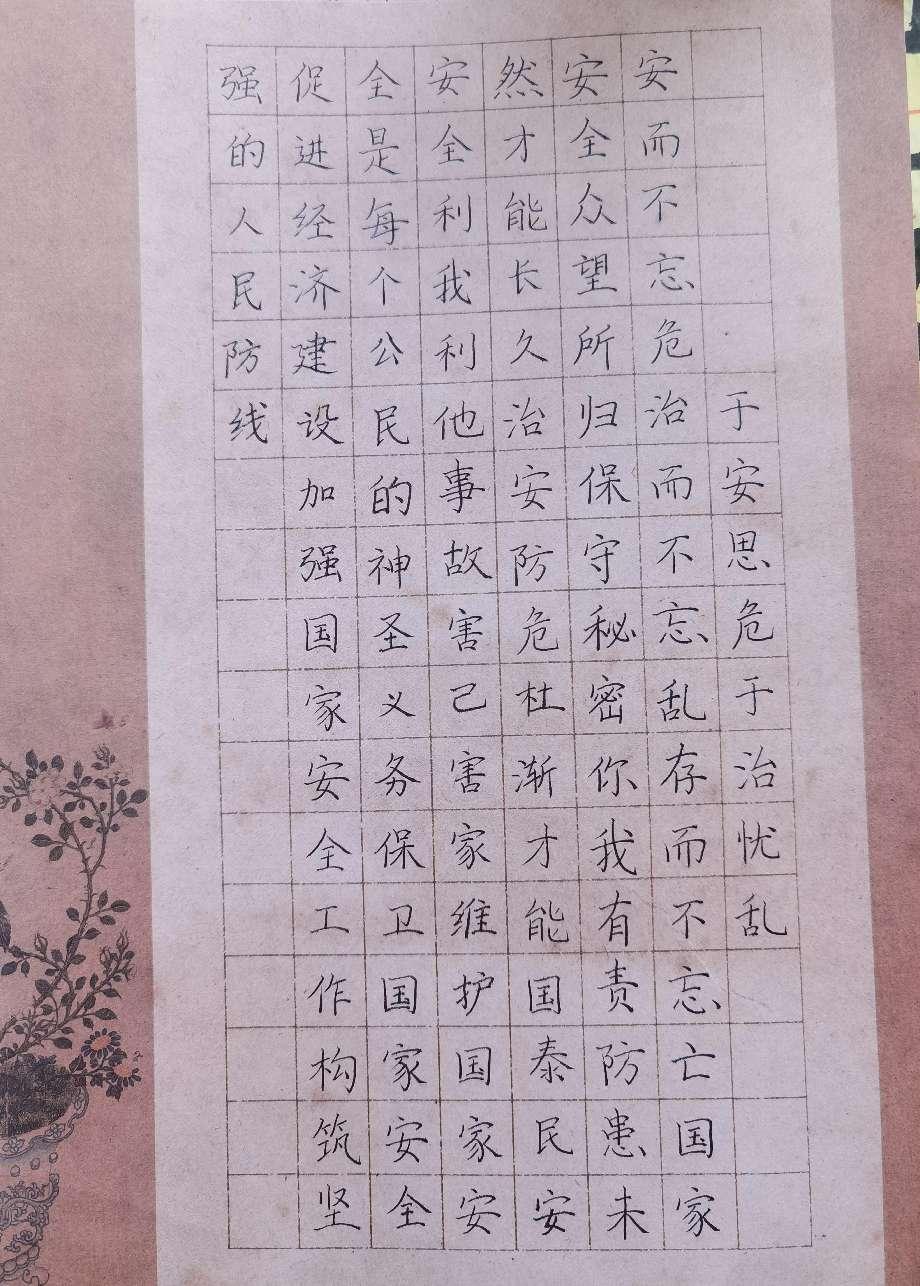 于安思危于治忧乱
安而不忘危治而不忘乱存而不忘亡国家
安全众望所归保守秘密你我有责防患未
然才能长久治安防危杜渐才能国泰民安
安全利我利他事故害己害家维护国家安
全是每个公民的神圣义务保卫国家安全
促进经济建设加强国家安全工作构筑坚
强的人民防线